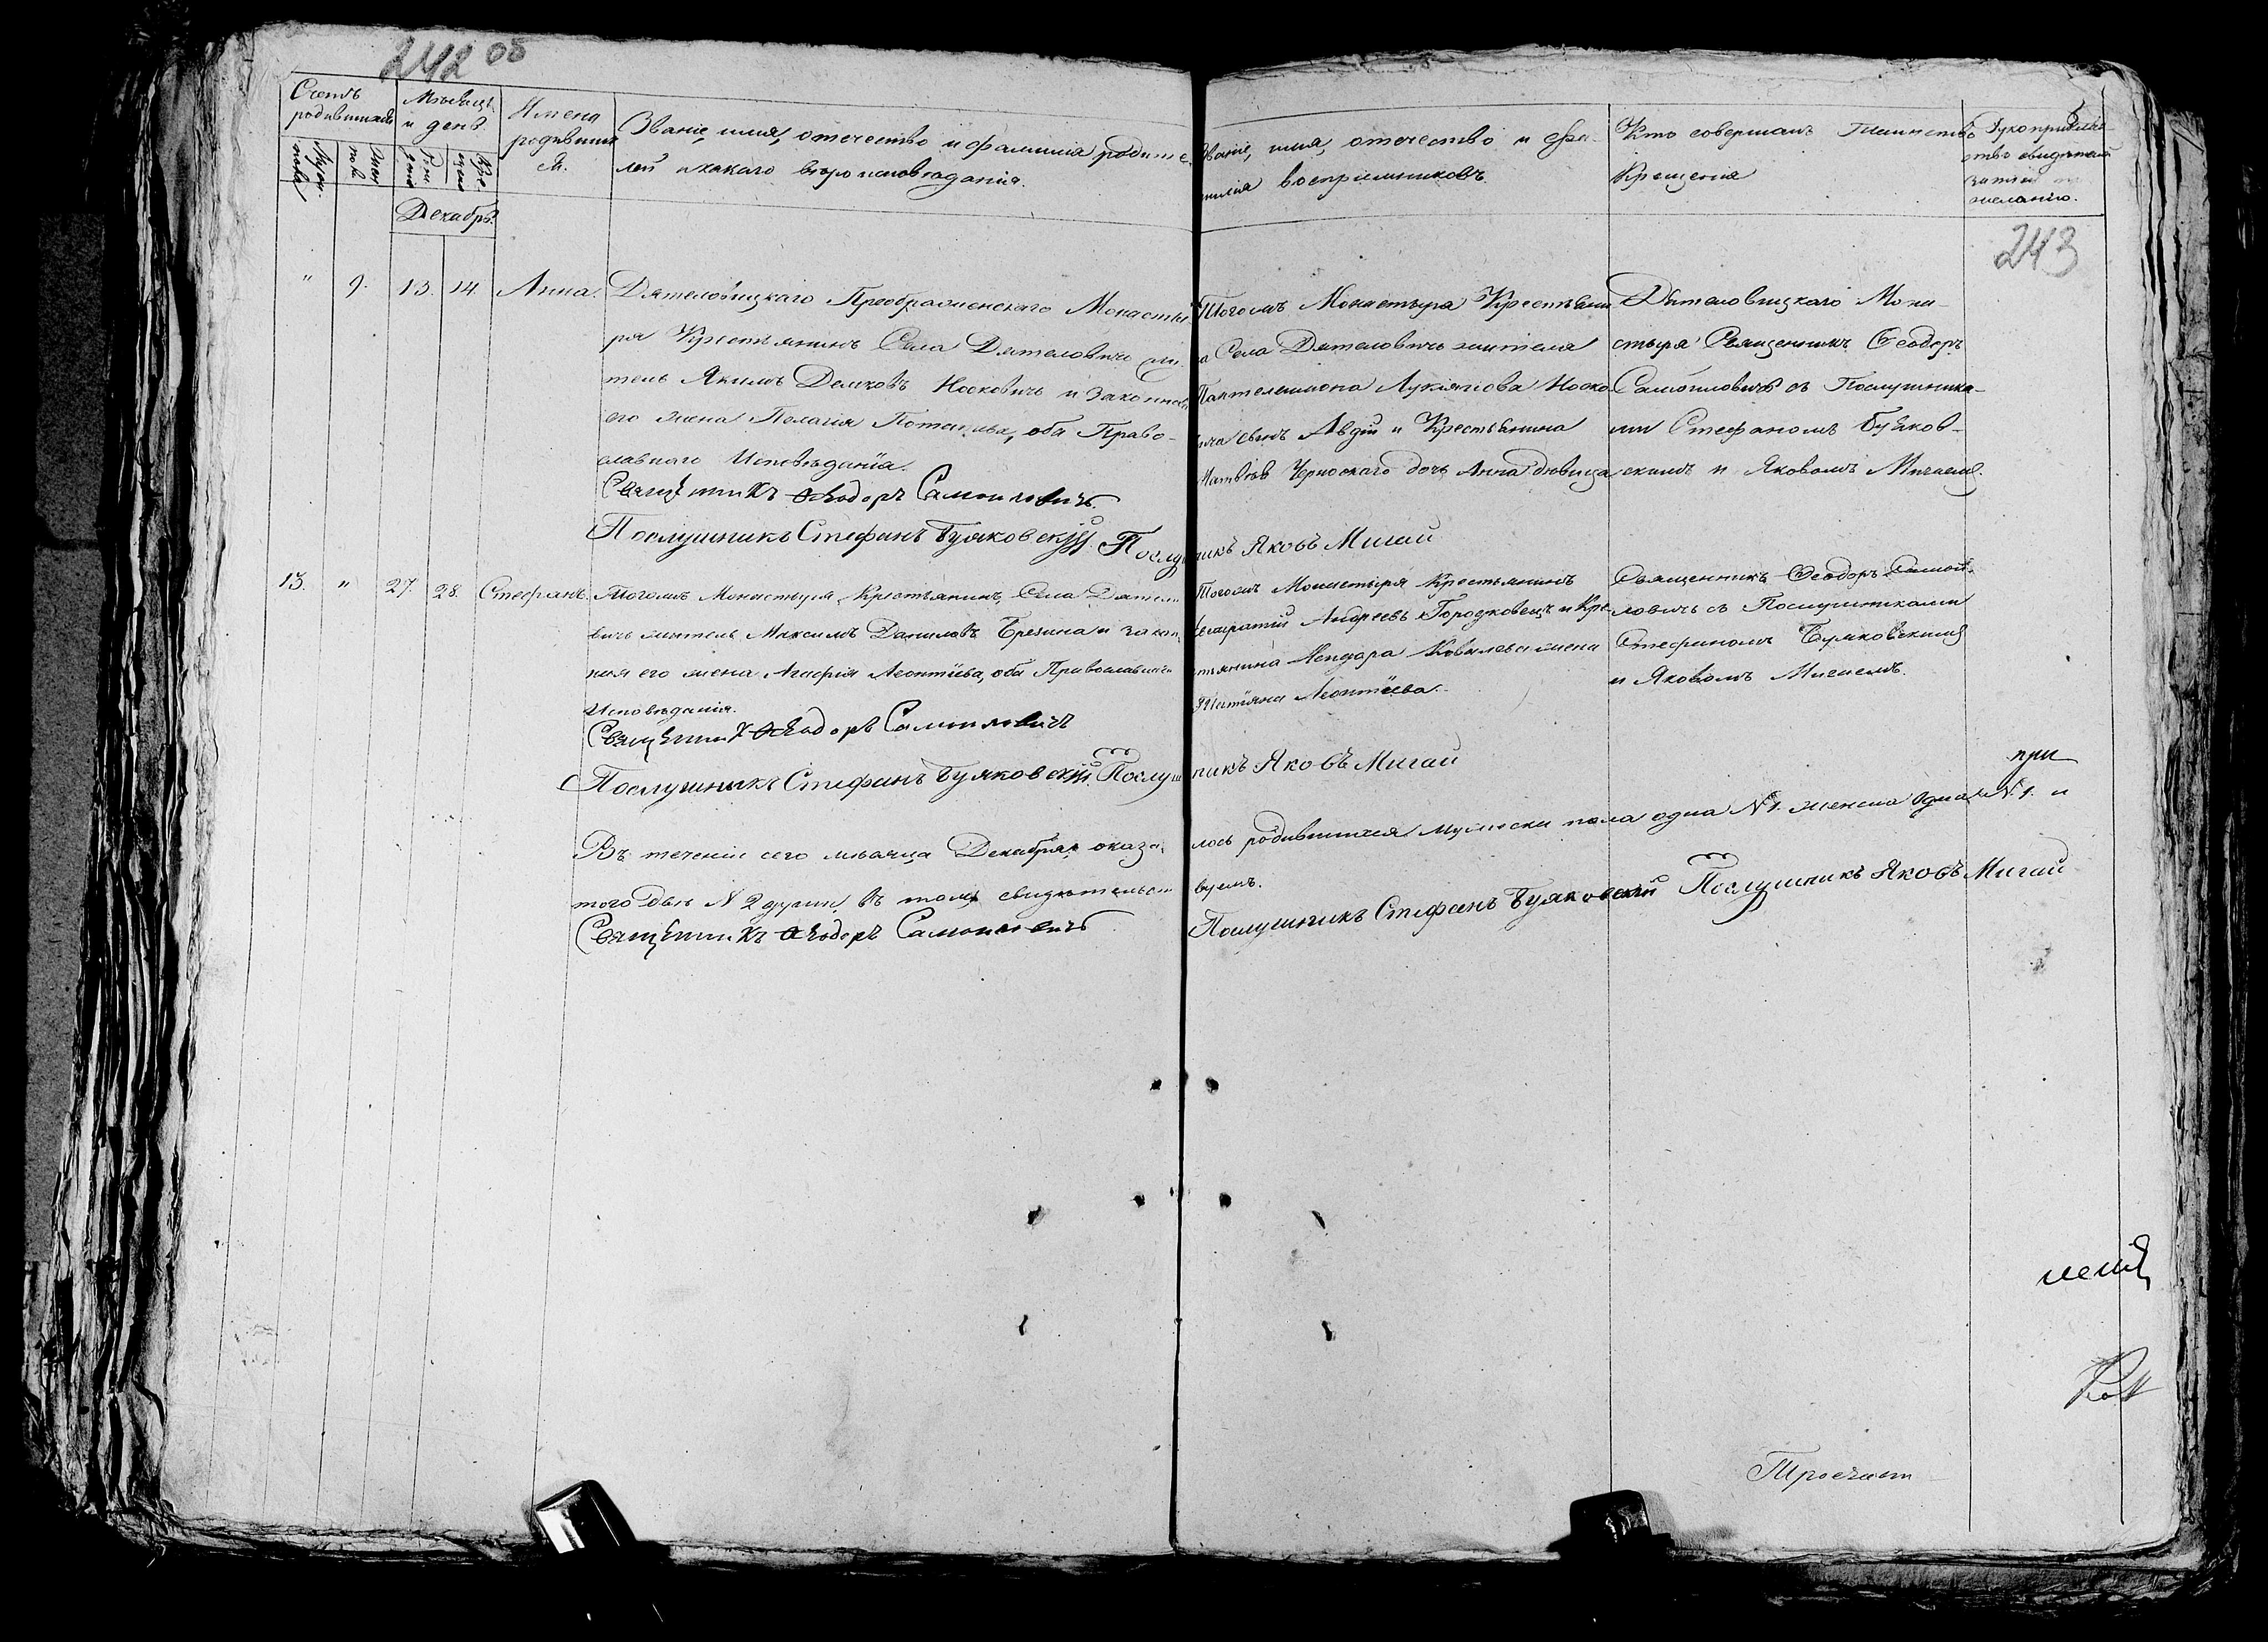 242 об
Счетъ родившихся
Мужеска пола
Женска пола
Мѣсяцъ и день
Рождения
Крещения
Имена родившихся.
Званіе, имя, отечество и фамилія родите-
лей и какаго вѣроисповѣданія.
Званіе, имя, отечество и фа-
милія воспріемниковъ.
Кто совершалъ Таинство
Крещенія
Рукоприклад-
ство свидѣтелей
записи по
желанію.
Декабрь
243
" 9. 13. 14. Анна.
Дятеловицкаго Преображенскаго Монасты-
ря Крестьянинъ Села Дятеловичъ жи-
тель Якимъ Демковъ Носковичъ и законная
его жена Пелагія Потапова, оба Право-
славнаго Исповѣданія.
Тогожъ Монастыря Крестьяни-
на Села Дятеловичъ жителя
Пантелеимона Лукянова Носко-
вича сынъ Авдій и Крестьянина
Матвѣя Черноскаго дочь Анна дѣвица
Дятеловицкаго Мона-
стыря Священникъ Ѳеодоръ
Самойловичъ съ Послушника-
ми Стефаномъ Буяков-
скимъ и Яковомъ Мигаемъ.
Священникъ Ѳеодоръ Самойловичъ.
Послушникъ Стефанъ Буяковскій Послушникъ Яковъ Мигай
13. " 27. 28. Стефанъ.
Тогожъ Монастыря Крестьянинъ, Села Дятело-
вичъ житель Максимъ Даниловъ Брезина и закон-
ная его жена Агафія Леонтіева, оба Православнаго
Исповѣданія.
Тогожъ Монастыря Крестьянинъ
Андреевъ Городковецъ и Кре-
стьянина Ковалева жена
Татіяна Леонтіева.
Священникъ Ѳеодоръ Самой-
ловичъ съ Послушниками
Стефаномъ Буяковскимъ
и Яковомъ Мигаемъ.
Священникъ Ѳеодоръ Самойловичъ
Послушникъ Стефанъ Буяковскій. Послушникъ Яковъ Мигай
при
Въ теченіи сего мѣсяца Декабря оказалось родившихся мужеска пола одна N 1. женска одна N 1. и
того N 2 души, въ томъ свидѣтельствуемъ.
Священникъ Ѳеодоръ Самойловичъ
Послушникъ Стефанъ Буяковскій Послушникъ Яковъ Мигай